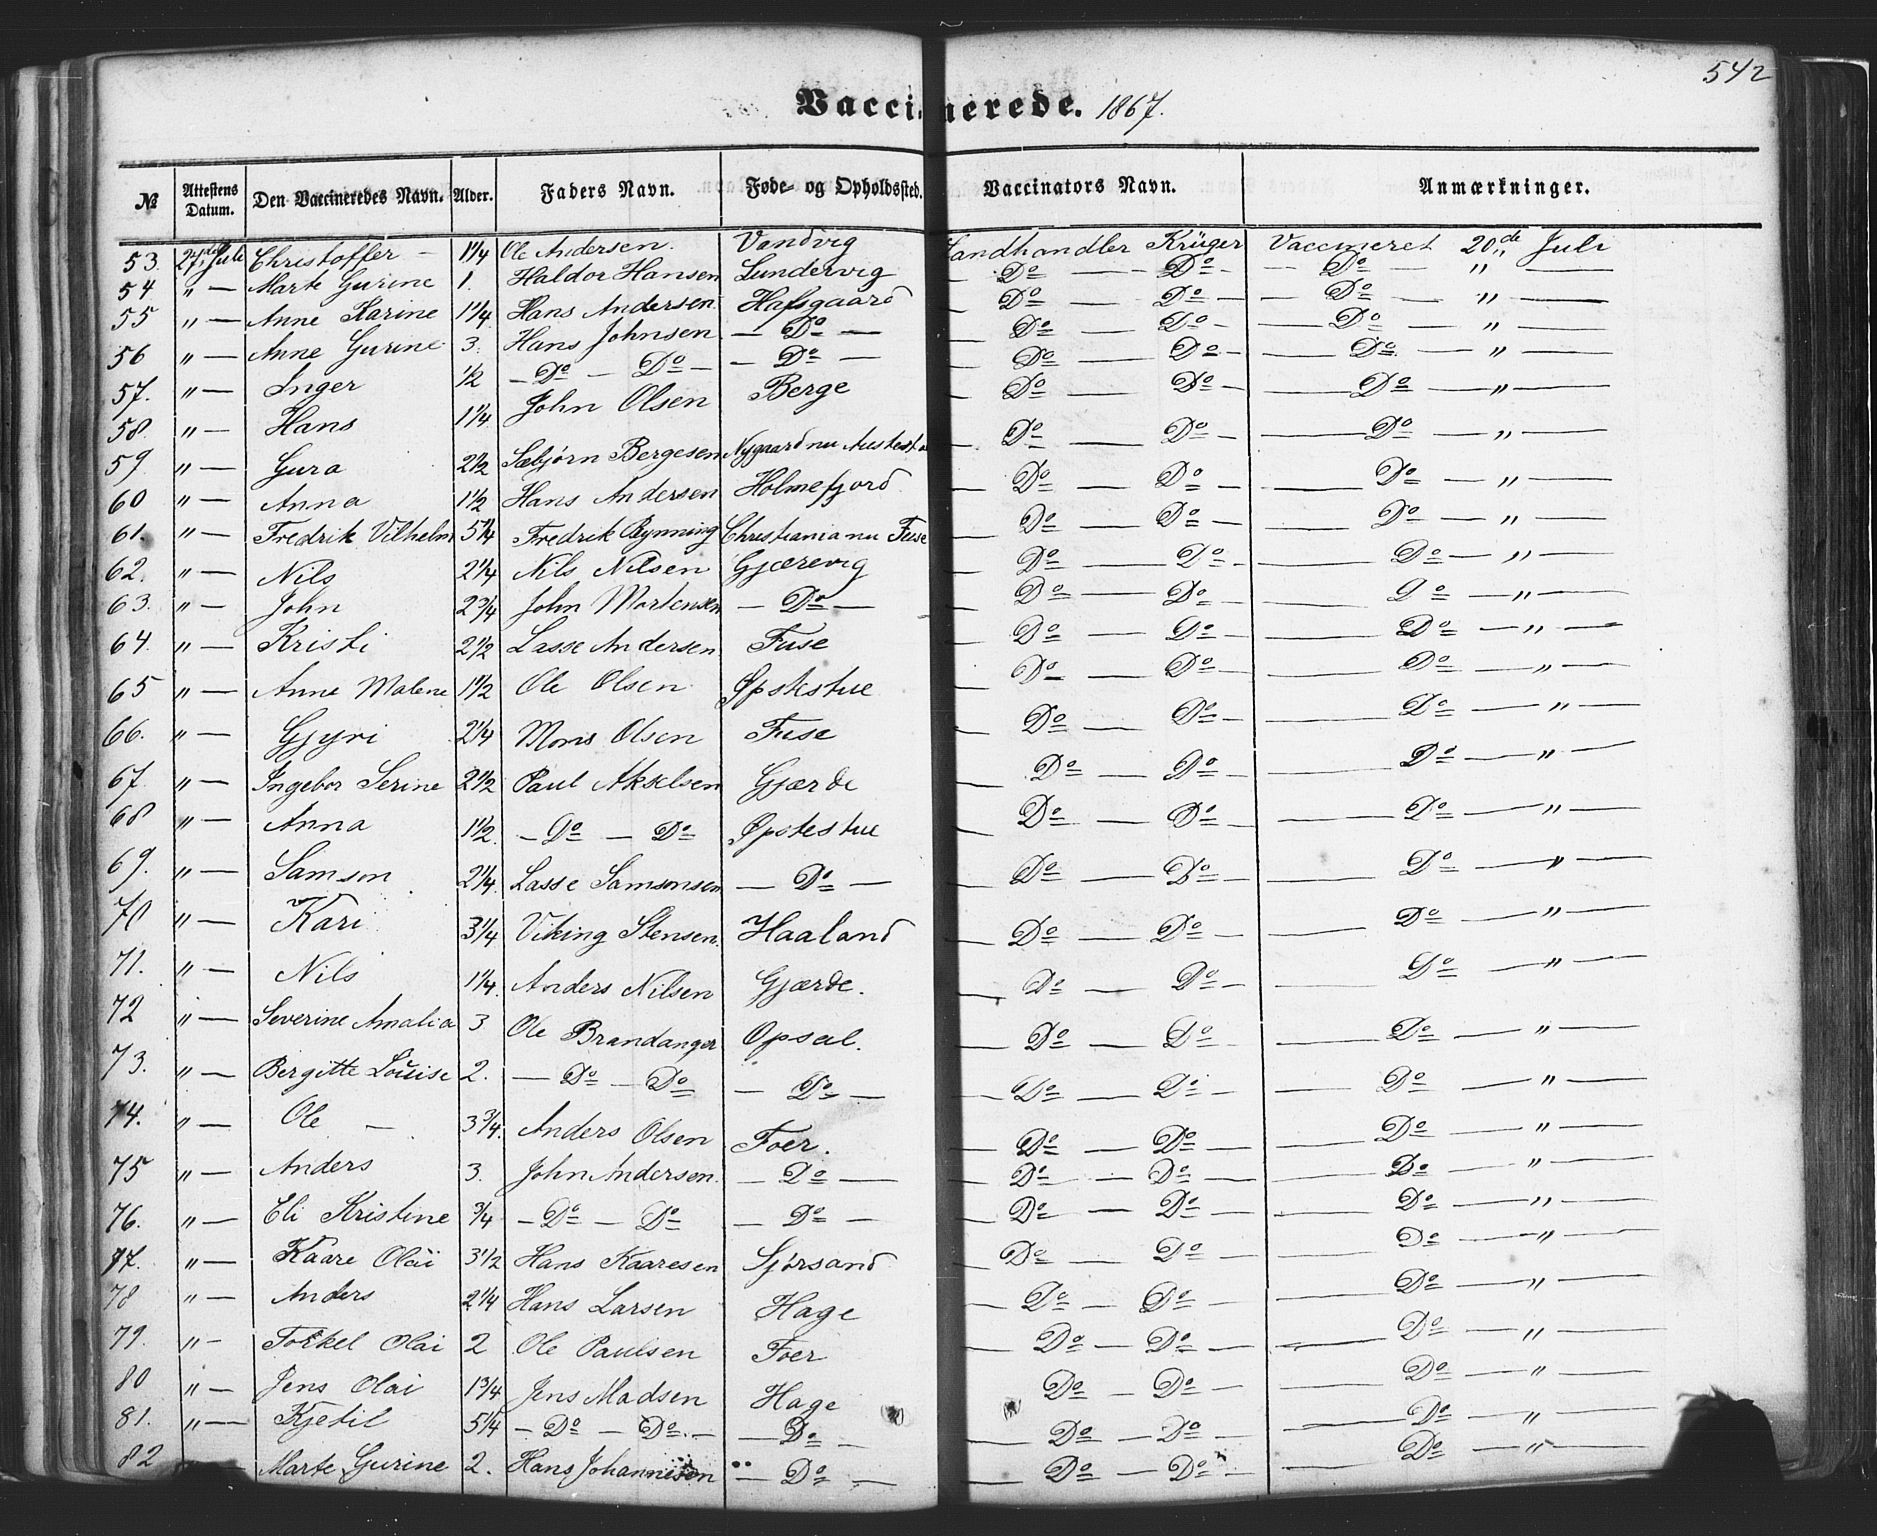 542
Vaccinerede. 1867.
№ | Attestens Datum. | Den Vaccineredes Navn. | Alder. | Faders Navn. | Føde- og Opholdssted. | Vaccinators Navn. | Anmærkninger.
53. 27de Juli Christoffer – 1 1/4 Ole Andersen. Vandvig Landhandler Krüger Vaccineret 20de Juli
54 " — Marte Gurine 1. Haldor Hansen Sundervig — Do — Do — Do — " —
55 " — Anne Karine 1 1/4 Hans Andersen Hafsgaard — Do — Do — Do — " —
56 " — Anne Gurine 3. Hans Johnsen — Do — — Do — Do — Do — " —
57. " — Inger 1/2 — Do — Do — — Do — — Do — Do — Do — " —
58. " — Hans 1 1/4 John Olsen Berge — Do — Do — Do — " —
59 " — Gura 2 1/2 Sæbjørn Bergesen Nygaard nu — Do — Do — Do — " —
60 " — Anna 1 1/2 Hans Andersen Holmefjord — Do — Do — Do — " —
61. " — Fredrik Vilhelm 5 1/4 Fredrik Rynning Christiania nu Fuse — Do — Do — Do — " —
62. " — Nils 2 1/4 Nils Nilsen Gjærevig — Do — Do — Do — " —
63. " — John 2 3/4 John Mortensen — Do — — Do — Do — Do — " —
64. " — Kristi 2 1/2 Lasse Andersen Fuse — Do — Do — Do — " —
65 " — Anne Malene 1 1/2 Ole Olsen Øpstestue — Do — Do — Do — " —
66. " — Gjyri 2 1/4 Mons Olsen Fuse — Do — Do — Do — " —
67. " — Ingebor Serine 2 1/2 Paul Akselsen Gjærde — Do — Do — Do — " —
68 " — Anna 1 1/2. — Do — Do Øpstestue — Do — Do — Do — " —
69. " — Samson 2 1/4. Lasse Samsonsen — Do — — Do — Do — Do — " —
70 " — Kari 3 1/4 Viking Stensen. Haaland — Do — Do — Do — " —
71. " — Nils 1 1/4. Anders Nilsen Gjærde. — Do — Do — Do — " —
72 " — Severine Amalia 3 Ole Brandanger Opsal. — Do — Do — Do — " —
73. " — Bergitte Louise 2. — Do — Do — Do — — Do — Do — Do — " —
74. " — Ole — 3 3/4. Anders Olsen Foer. — Do — Do — Do — " —
75 " — Anders 3. John Andersen. — Do — — Do — Do — Do — " —
76. " — Eli Kristine 3/4 — Do — Do — Do — — Do — Do — Do — " —
77. " — Kaare Olai 3 1/2 Hans Kaaresen Sjørsand — Do — Do — Do — " —
78 " — Anders 2 1/4 Hans Larsen Hage — Do — Do — Do — " —
79. " — Torkel Olai 2 Ole Paulsen Foer — Do — Do — Do — " —
80 " — Jens Olai 1 3/4 Jens Madsen Hage — Do — Do — Do — " —
81. " — Kjetil 5 1/4 — Do — Do. — — Do — — Do — Do — Do — " —
82 — Marte Gurine 2. Hans Johannesen — Do — — Do — Do — Do — " —